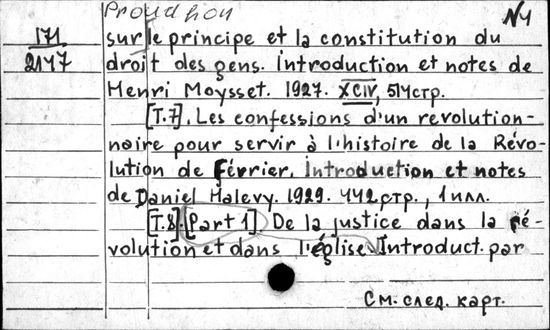 Proudhon
N4
171
2147
sur le principe et la constitution du
droit des gens. Introduction et notes de
Henri Moysset. 1927. XCIV, 514стр.
[T.7]. Les confessions d'un revolution-
naire pour servir à l'histoire de la Révo-
lution de Février. Introduction et notes
de Daniel Halevy. 1929. 442стр., 1 илл.
[T.8]. [Part 1] De la justice dans la ré-
volution et dans l'église. Introduct. par
См. след. карт.